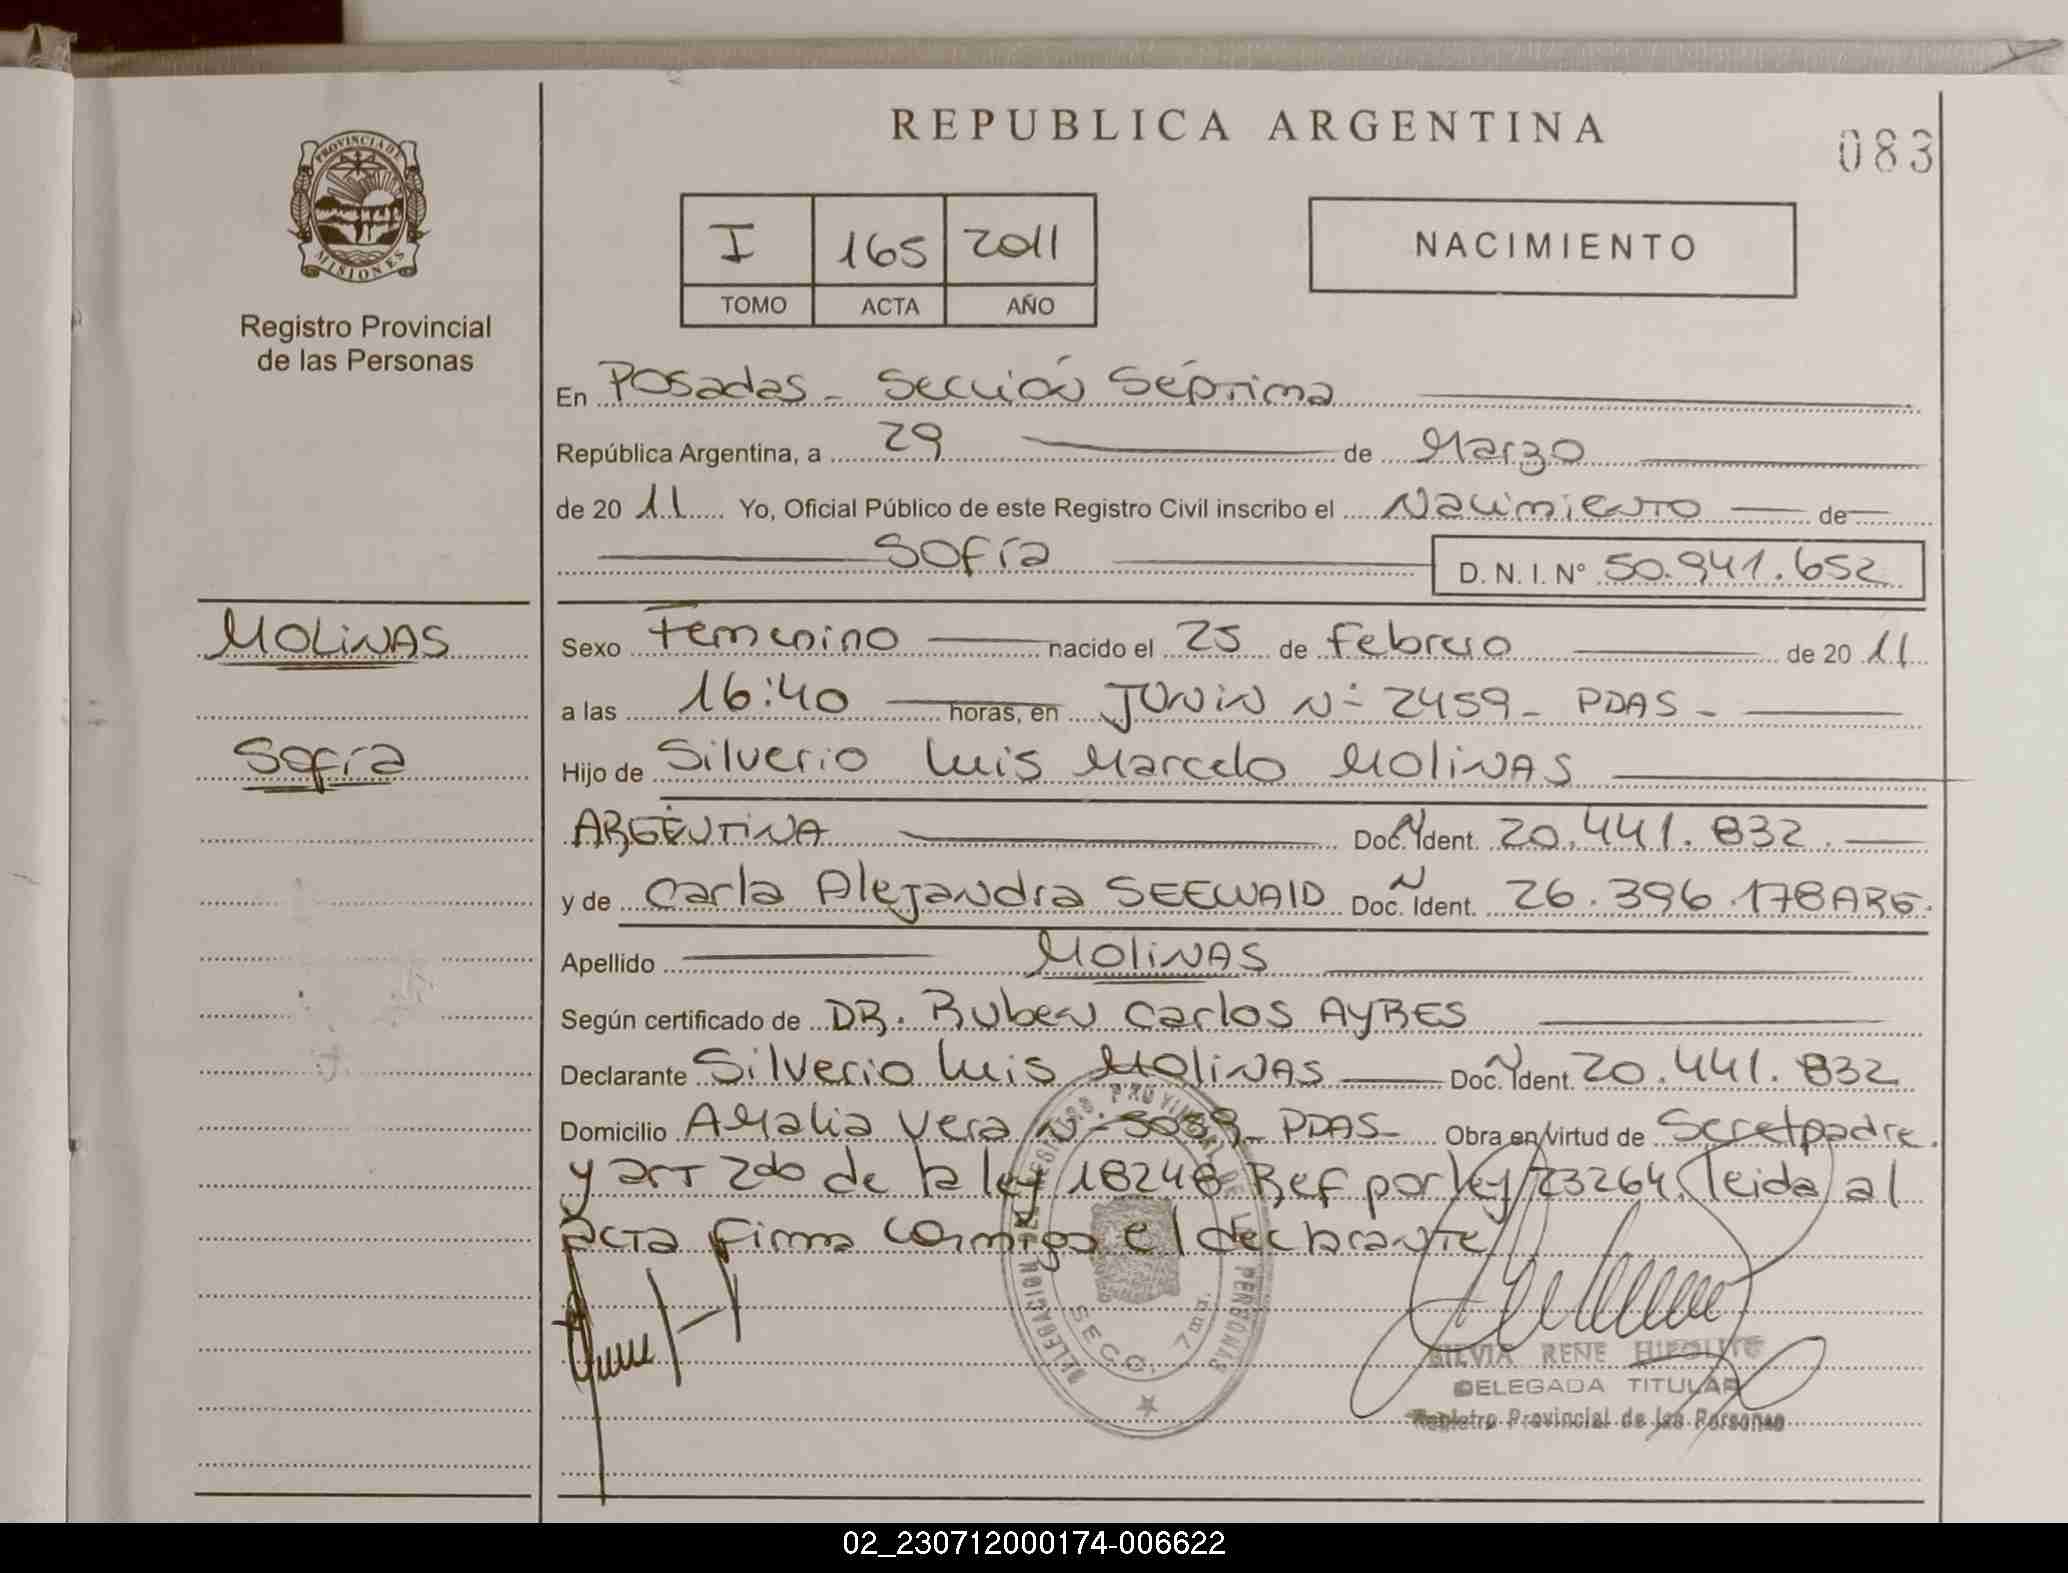 REPUBLICA ARGENTINA
083
PROVINCIA DE
MISIONES
Registro Provincial
de las Personas
I 165 2011
TOMO ACTA AÑO
NACIMIENTO
En Posadas - Sección Séptima
República Argentina, a 29 de Marzo
de 20 11 Yo, Oficial Público de este Registro Civil inscribo el Nacimiento de
Sofía
D. N. I. N° 50.941.652
MOLINAS
Sofía
Sexo Femenino nacido el 25 de Febrero de 20 11
a las 16:40 horas, en JUNIN N° 2459 - PDAS -
Hijo de Silverio Luis Marcelo MOLINAS
ARGENTINA Doc. Ident. 20.441.832
y de Carla Alejandra SEEWALD Doc. Ident. 26.396.178 ARG.
Apellido MOLINAS
Según certificado de DR. Ruben Carlos AYRES
Declarante Silverio Luis MOLINAS Doc. Ident. 20.441.832
Domicilio Amalia Vera N° PDAS - Obra en virtud de Ser el padre.
y art 2do de la ley 18248 Ref por ley 23264, leida al
acta firma conmigo el declarante
DELEGACION REGISTRO PROVINCIAL DE LAS PERSONAS
SECC. 7ma.
SILVIA RENE HIPOLITO
DELEGADA TITULAR
Registro Provincial de las Personas
02_230712000174-006622